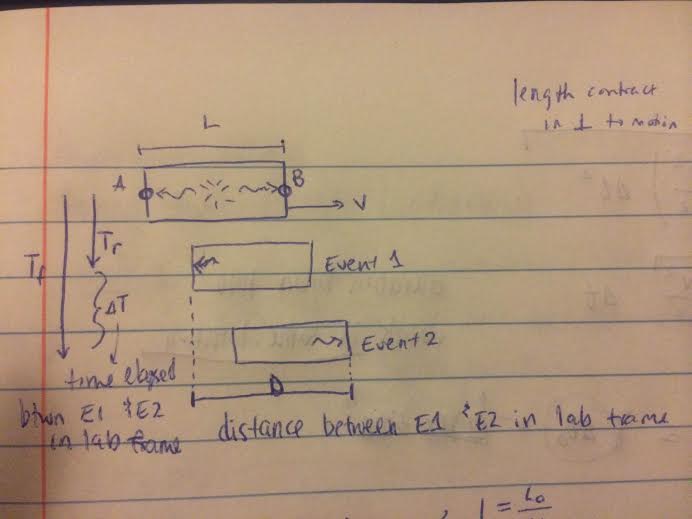 length contract
in ⊥ to motion
L
A
B
V
Tr
Tf
ΔT
Event 1
Event 2
D
time elapsed
btwn E1 & E2
in lab frame
distance between E1 & E2 in lab frame
Δt²
Δt
l = L₀